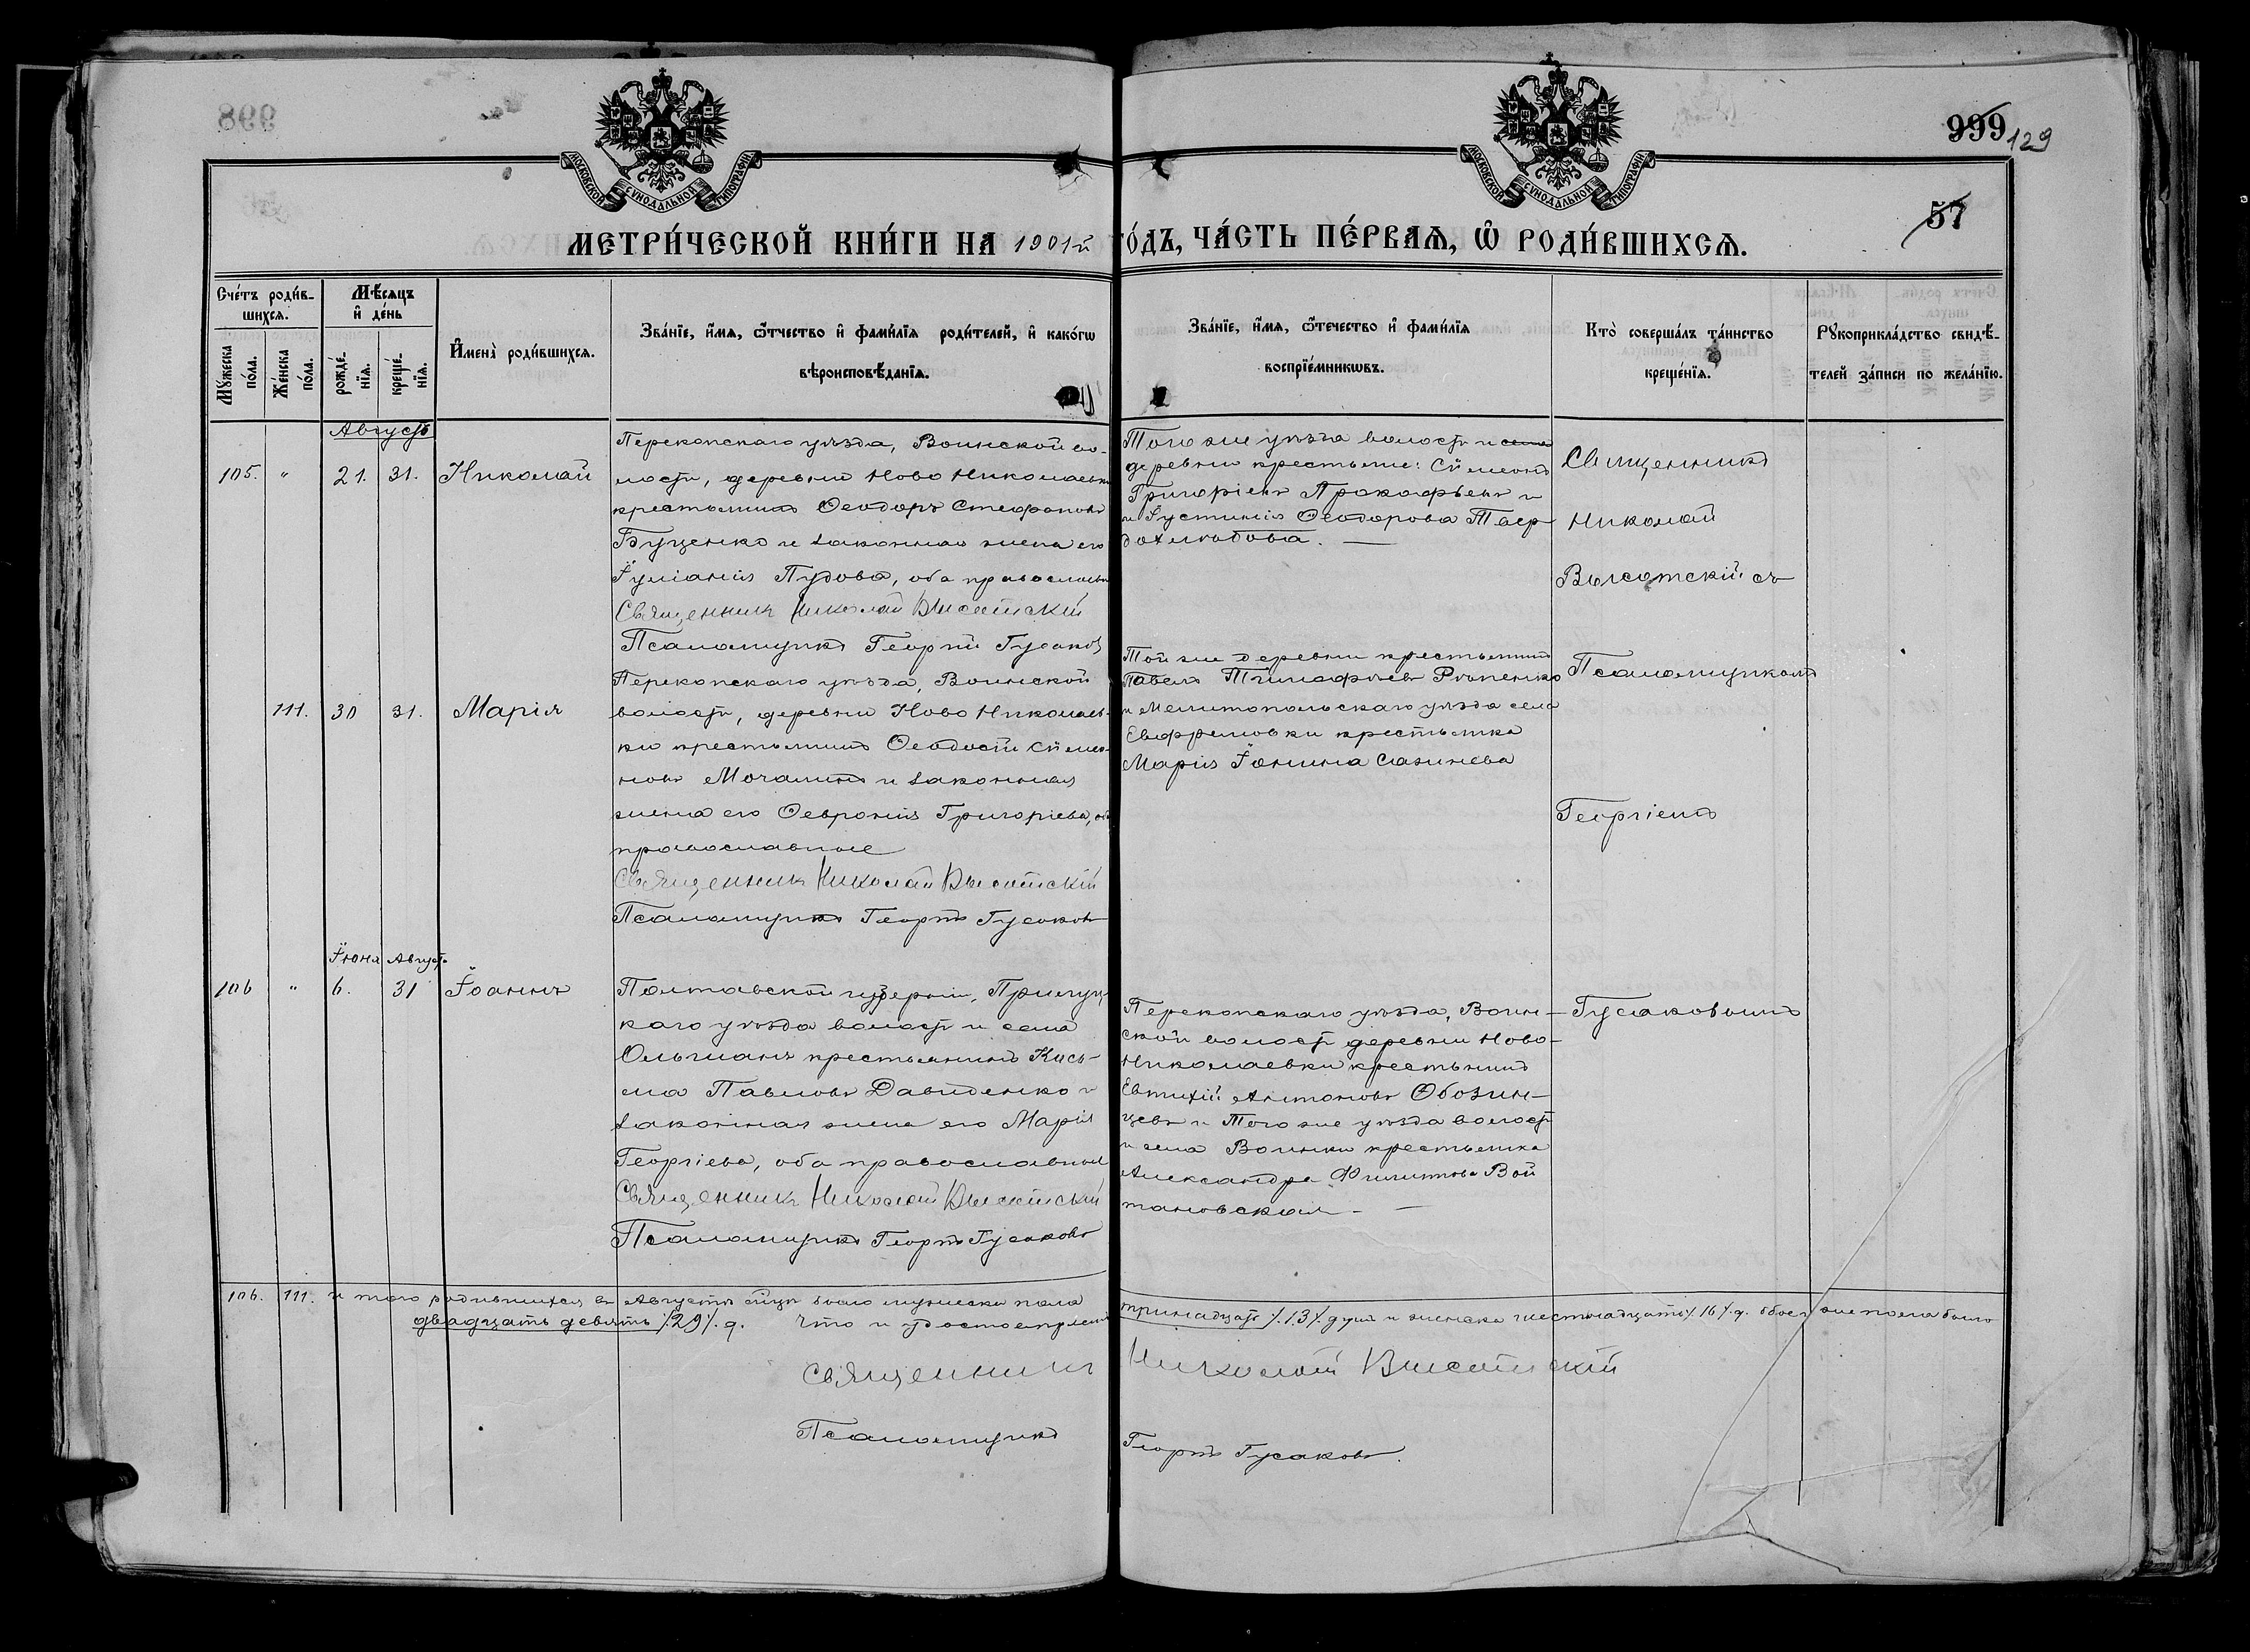 999
129
57
МОСКОВСКОЙ СѴНОДАЛЬНОЙ ТИПОГРАФІИ
МОСКОВСКОЙ СѴНОДАЛЬНОЙ ТИПОГРАФІИ
МЕТРИ́ЧЕСКОЙ КНИ́ГИ НА 1901й ГО́ДЪ, ЧА́СТЬ ПЕ́РВАѦ, Ѡ҆ РОДИ́ВШИХСѦ.
Сче́тъ роди́вшихсѧ.
Мꙋ́жеска по́ла.
Же́нска по́ла.
Мѣ́сѧцъ и҆ де́нь
рожде́нїѧ.
креще́нїѧ.
И҆мена̀ роди́вшихсѧ.
Зва́нїе, и҆́мѧ, ѻ҆́тчество и҆ фами́лїѧ роди́телей, и҆ како́гѡ
вѣроисповѣ́данїѧ.
Зва́нїе, и҆́мѧ, ѻ҆те́чество и҆ фами́лїѧ
воспрїе́мникѡвъ.
Кто̀ соверша́лъ та́инство
креще́нїѧ.
Рꙋкоприкла́дство свидѣ́-
телей за́писи по жела́нїю.
Августъ
105. " 21. 31. Николай
Перекопскаго уѣзда, Воинской во-
лости, деревни Ново Николаевки
крестьянинъ Ѳеодоръ Стефановъ
Буценко и законная жена его
Іуліанія Пудова, оба православн
Священникъ Николай Высотскій
Псаломщикъ Георгій Гусаковъ
Того же уѣзда волости и села
деревни крестьяне: Сѵмеонъ
Григоріевъ Прокофьевъ и
и Іустинія Ѳеодорова Твер-
дохлѣбова. —
Священникъ
Николай
Высотскій съ
Псаломщикомъ
Георгіемъ
Гусаковымъ
111. 30 31. Марія
Перекопскаго уѣзда, Воинской
волости, деревни Ново Николаев-
ки крестьянинъ Ѳеодосій Сѵмео-
новъ Мочалинъ и законная
жена его Ѳевронія Григоріева, оба
православные
Священникъ Николай Высотскій
Псаломщикъ Георгій Гусаковъ
Той же деревни крестьянинъ
Павелъ Тимофѣевъ Рѣпенко
и Мелитопольскаго уѣзда села
Ефремовки крестьянка
Марія Іонина Сазинева
Іюня Августъ
106 " 6. 31 Іоаннъ
Полтавской губерніи, Прилуц-
каго уѣзда волости и села
Ольшанъ крестьянинъ Кось-
ма Павловъ Давиденко и
законная жена его Марія
Георгіева, оба православные
Священникъ Николай Высотскій
Псаломщикъ Георгій Гусаковъ
Перекопскаго уѣзда, Воин-
ской волости деревни Ново-
Николаевки крестьянинъ
Евтихій Антоновъ Обозин-
цевъ и Того же уѣзда волости
и села Воинки крестьянка
Александра Филиппова Вой
тановская —
106. 111. и того родившихся въ Августѣ м-цѣ было мужеска пола тринадцать /.13/. душъ и женска шестнадцать /.16/. д. обоего же пола было
двадцать девять /.29/. д. Что и удостовѣряемъ
Священникъ Николай Высотскій
Псаломщикъ Георгій Гусаковъ.